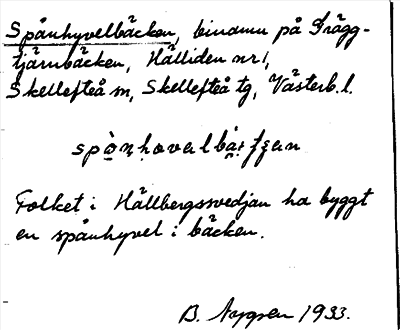 Spånhyvelbäcken, binamn på Drägg-
tjärnbäcken, Hälliden nr 1,
Skellefteå sn, Skellefteå tg, Västerb.l.
Folket i Hällbergssvedjan ha byggt
en spånhyvel i bäcken.
B. 1933.